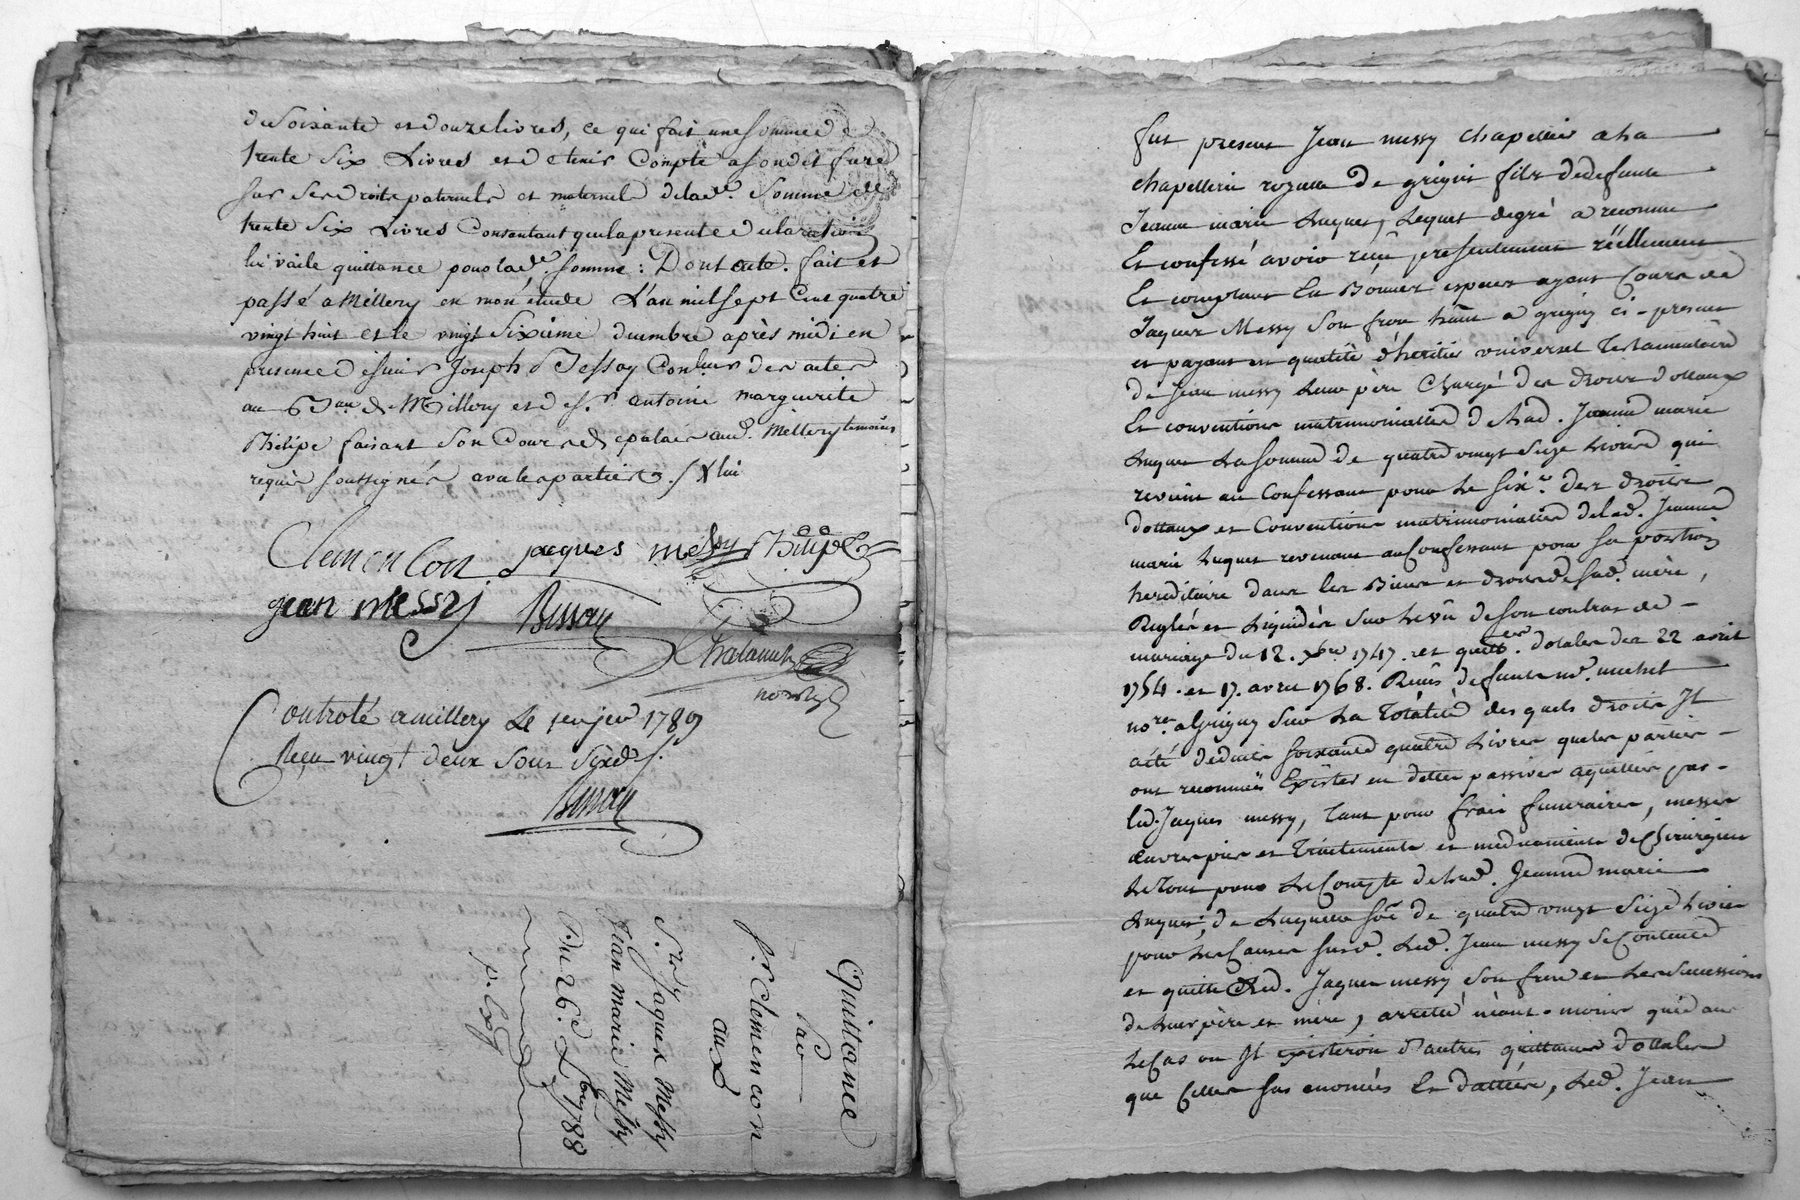 de Soixante et douze livres, ce qui fait une Somme de
trente Six Livres et de tenir Compte a Sondit frere
Sur Ses droits paternels et maternels de lade. Somme de
trente Six Livres Consentant que la presente declaration
lui vaille quittance pour lade. Somme : Dont acte. fait et
passé a Millery en mon étude L'an mil Sept Cent quatre
vingt huit et le vingt Sixieme decembre après midi en
presence de Sieur Joseph Bessay Conlleur des actes
au Bau. de Millery et de Sr. antoine marguerite
Philipe faisant Son Cours de palais aud. Millery temoins
requis Soussignés avec les parties. / X lui
Clemencon jacques messy Philipe
jean messy Bessay
Chalamel
nore
Controlé a millery Le 1er janvr 1789
Reçu vingt deux Sous Six drs.
Bessay
Quittance
Par
Sr. Clemencon
aux
Srs. Jaques Messy
Jean marie Messy
Du 26. Xbre 1788
p. Exg
fut present Jean messy chapellier a la
chapellerie royalle de grigni fils de defunte
Jeanne marie Luquet, Lequel de gré a reconnu
Et confessé avoir reçu presentement réellement
Et comptant En Bonnes especes ayant Cours de
Jaques Messy Son frere habitt a grigny ci-present
et payant en qualité d'heritier universel Testamentaire
de Jean messy Leur père Chargé des droits dottaux
Et conventions matrimonialles de Lad. Jeanne marie
Luquet La Somme de quatre vingt Seize Livres qui
revient au Confessant pour Le Sixe. des droits
dottaux et Conventions matrimonialles de lad. Jeanne
marie Luquet revenant au Confessant pour Sa portion
hereditaire dans les Biens et droits de Sad. mère,
Reglés et Liquidés Sur Le vû de Son contrat de -
mariage du 12. 7bre 1747. et quitt.ces dotales des 22 avril
1754. et 17. avril 1768. Reçûs defunt me. michel
nore. a Grigny Sur La Totalité des quels droits Il
a été déduit soixante quatre Livres que les parties -
ont reconnues Exister en dettes passives aquittées par -
led. Jaques messy, Tant pour frais funeraires, messes
œuvres pies et Traitements et medicaments de Chirurgien
Le Tout pour Le Compte de Lad. Jeanne marie
Luquet ; de Laquelle Soe de quatre vingt Seize Livres
pour Les Causes Susd. Led. Jean messy Se Contente
et quitte Led. Jaques messy Son frere et Les Successions
de Leurs père et mère, arreté néant-moins que au
Le Cas ou Il existeroit d'autres quittances dottales
que Celles Sus enoncées Et dattées, Led. Jean